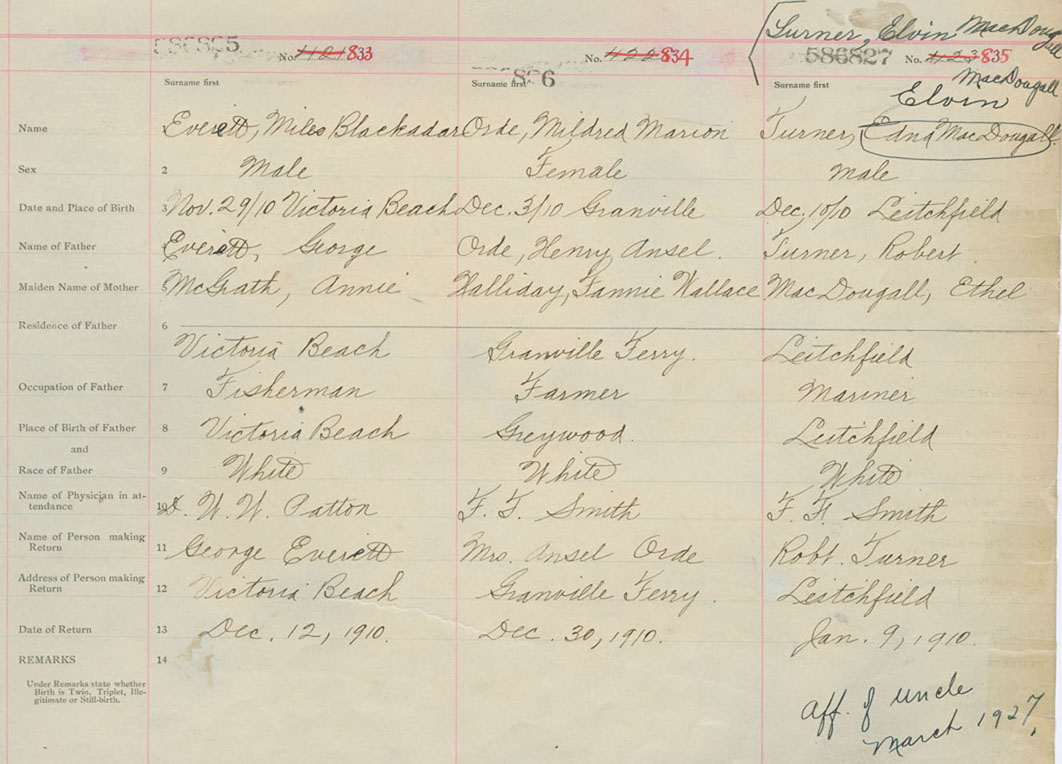 Turner, Elvin MacDougall
586825 No. 1121 833 No. 1122 834 586827 No. 1123 835
Surname first Surname first 826 Surname first MacDougall
Elvin
Name Everett, Miles Blackadar Orde, Mildred Marion Turner, Edna MacDougall.
Sex 2 Male Female Male
Date and Place of Birth 3 Nov. 29/10 Victoria Beach Dec. 3/10 Granville Dec. 10/10 Leitchfield
Name of Father Everett, George Orde, Henry Ansel. Turner, Robert.
Maiden Name of Mother McGrath, Annie Halliday, Fannie Wallace MacDougall, Ethel
Residence of Father 6
Victoria Beach Granville Ferry. Leitchfield
Occupation of Father 7 Fisherman Farmer Mariner
Place of Birth of Father 8 Victoria Beach Greywood. Leitchfield
and
Race of Father 9 White White White
Name of Physician in at-
tendance 10 D. W. W. Patton F. F. Smith F. F. Smith
Name of Person making
Return 11 George Everett Mrs. Ansel Orde Robt. Turner
Address of Person making
Return 12 Victoria Beach Granville Ferry. Leitchfield
Date of Return 13 Dec. 12, 1910. Dec. 30, 1910. Jan. 9, 1910.
REMARKS 14
Under Remarks state whether
Birth is Twin, Triplet, Ille-
gitimate or Still-birth.
aff. of uncle
March 1927,